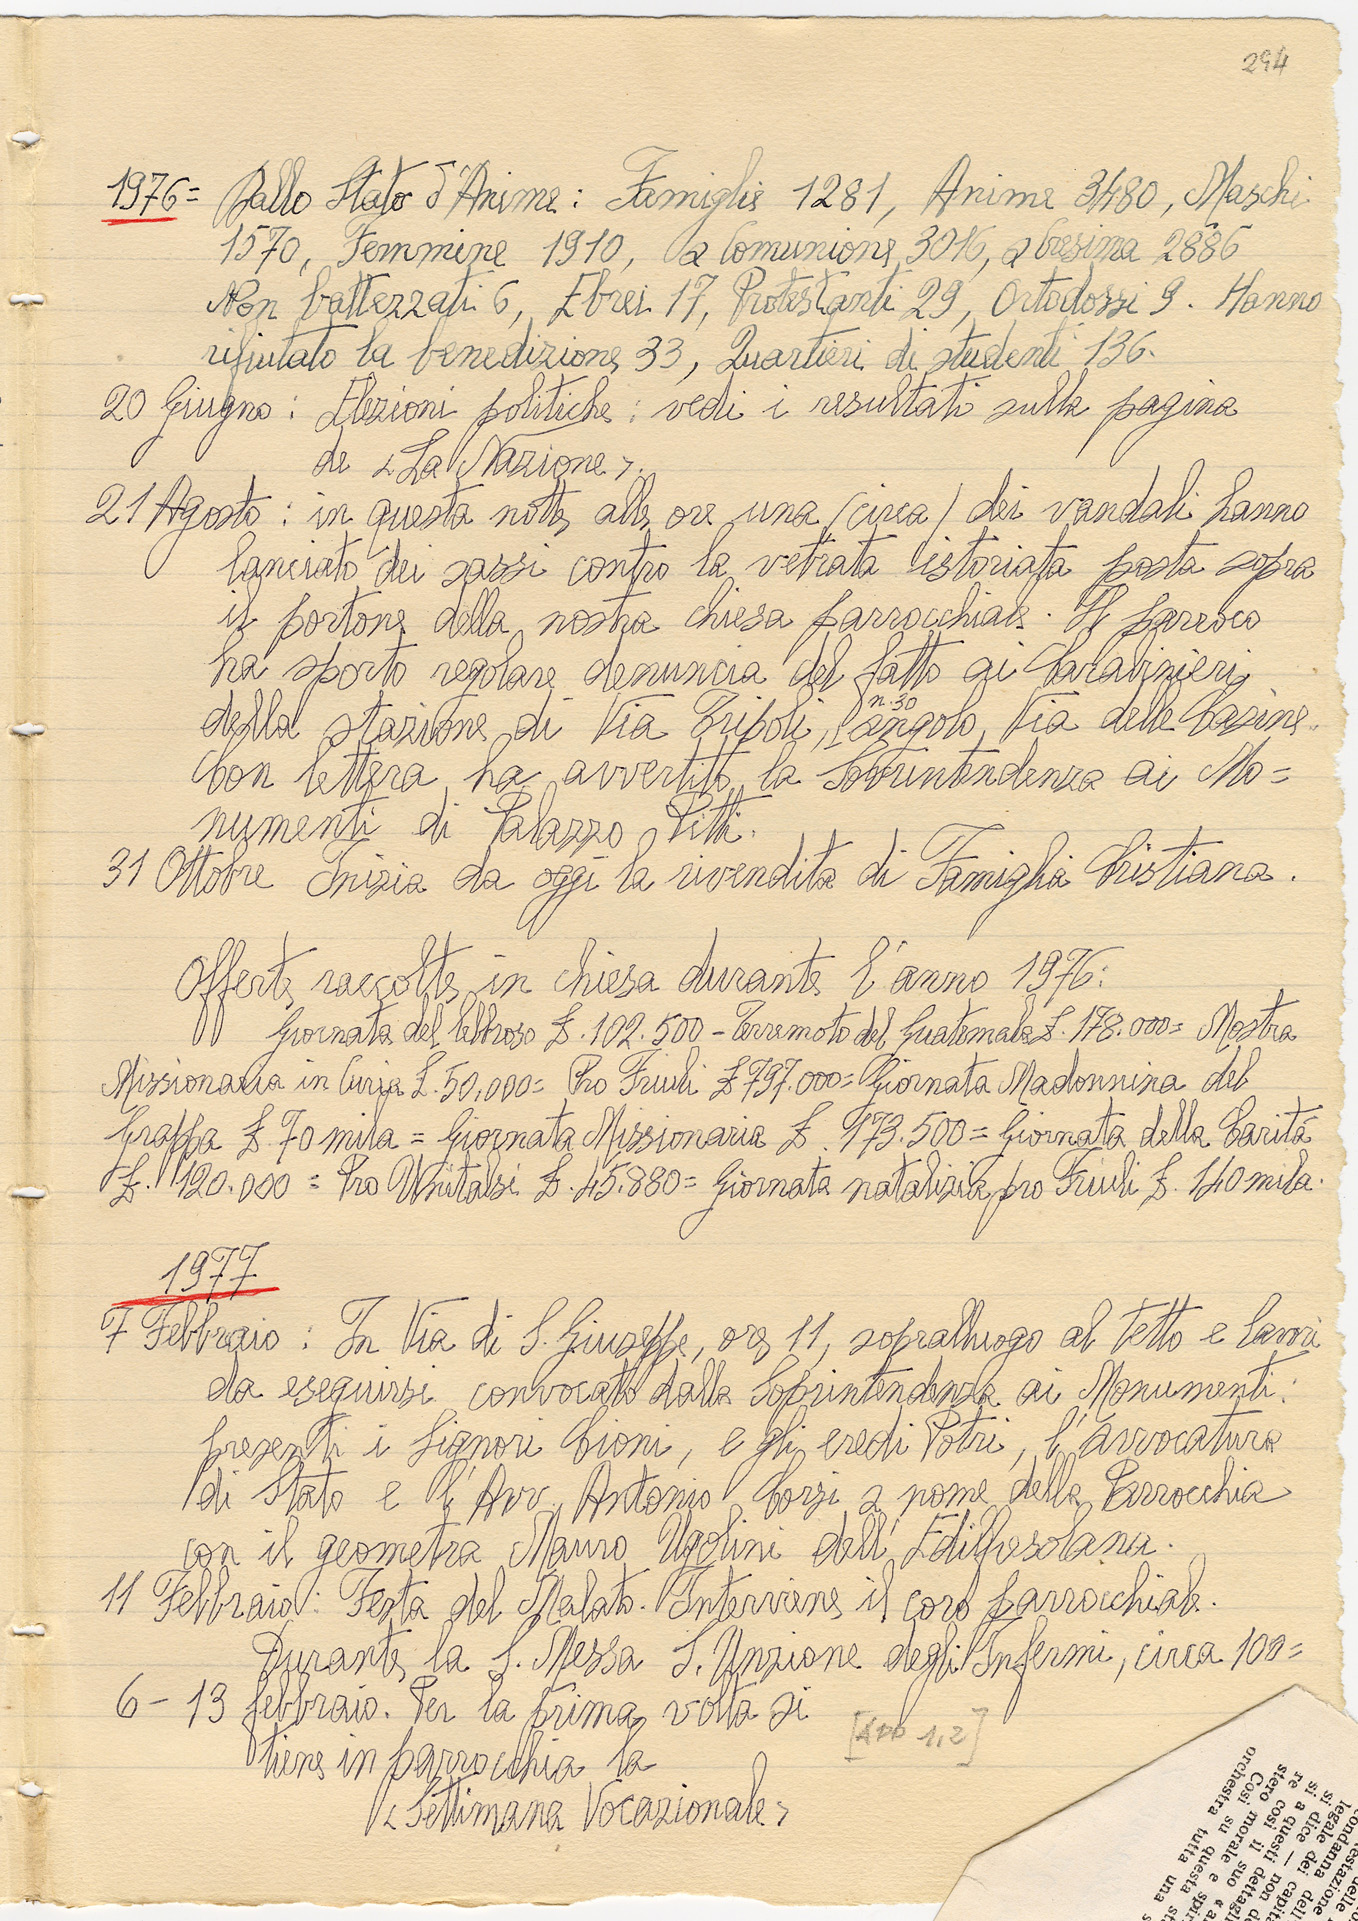 294
1976= Dallo Stato d'Anime: Famiglie 1281, Anime 3480, Maschi
1570, Femmine 1910, a Comunione 3016, a Cresima 2886
Non battezzati 6, Ebrei 17, Protestanti 29, Ortodossi 9. Hanno
rifiutato la benedizione 33, Quartieri di studenti 136.
20 Giugno: Elezioni politiche: vedi i resultati sulla pagina
de «La Nazione».
21 Agosto: in questa notte alle ore una (circa) dei vandali hanno
lanciato dei sassi contro la vetrata istoriata posta sopra
il portone della nostra chiesa parrocchiale. Il parroco
ha sporto regolare denuncia del fatto ai Carabinieri
n. 30
della stazione di Via Tripoli, angolo Via delle Casine.
Con lettera ha avvertito la Sovrintendenza ai Mo=
numenti di Palazzo Pitti.
31 Ottobre Inizia da oggi la rivendita di Famiglia Cristiana.
Offerte raccolte in chiesa durante l'anno 1976:
Giornata del lebbroso £. 102.500 - Terremoto del Guatemala £. 178.000= Mostra
Missionaria in Curia £. 50.000= Pro Friuli £ 797.000= Giornata Madonnina del
Grappa £. 70 mila = Giornata Missionaria £. 173.500= Giornata della Carità
£. 120.000 = Pro Unitalsi £. 45.880= Giornata natalizia pro Friuli £. 140 mila.
1977
7 Febbraio: In Via di S. Giuseppe, ore 11, sopralluogo al tetto e lavori
da eseguirsi convocato dalla Soprintendenza ai Monumenti:
presenti i Signori Cioni, e gli eredi Potri, l'avvocatura
di Stato e l'Avv. Antonio Corsi a nome della Parrocchia
con il geometra Mauro Ugolini dell'Edilfesolana.
11 Febbraio: Festa del Malato. Interviene il coro parrocchiale.
Durante la S. Messa S. Unzione degli Infermi, circa 100=
6 - 13 febbraio. Per la prima volta si
tiene in parrocchia la
«Settimana Vocazionale»
[APP 1,2]
orchestra tutta una
Così su questa
stero morale e spir
re così il suo «
si a questi dettagli
si dice — non
legale dei capita
condanna dell